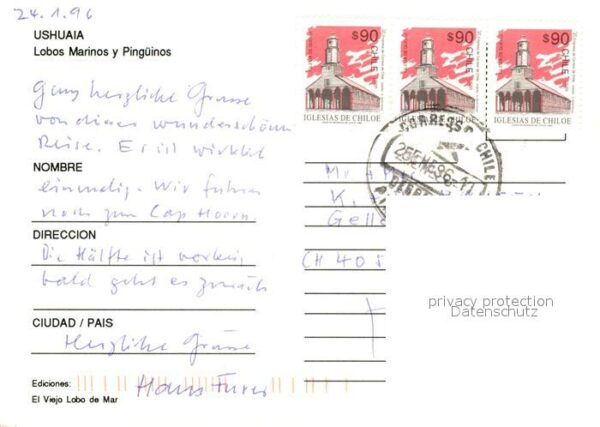 24.1.96
USHUAIA
Lobos Marinos y Pingüinos
Ganz herzliche Grüsse
von dieser wunderschönen
Reise. Es ist wirklich
NOMBRE
einmalig. Wir fuhren
noch zum Cap Hoorn.
DIRECCION
Die Hälfte ist vorbei,
bald geht es zurück
CIUDAD / PAIS
Herzliche Grüsse
Hans
Ediciones:
El Viejo Lobo de Mar
$90 $90 $90
CHILE CHILE CHILE
IGLESIAS DE CHILOE IGLESIAS DE CHILOE IGLESIAS DE CHILOE
CORREOS CHILE
25 ENE 96
K.
CH 405
privacy protection
Datenschutz